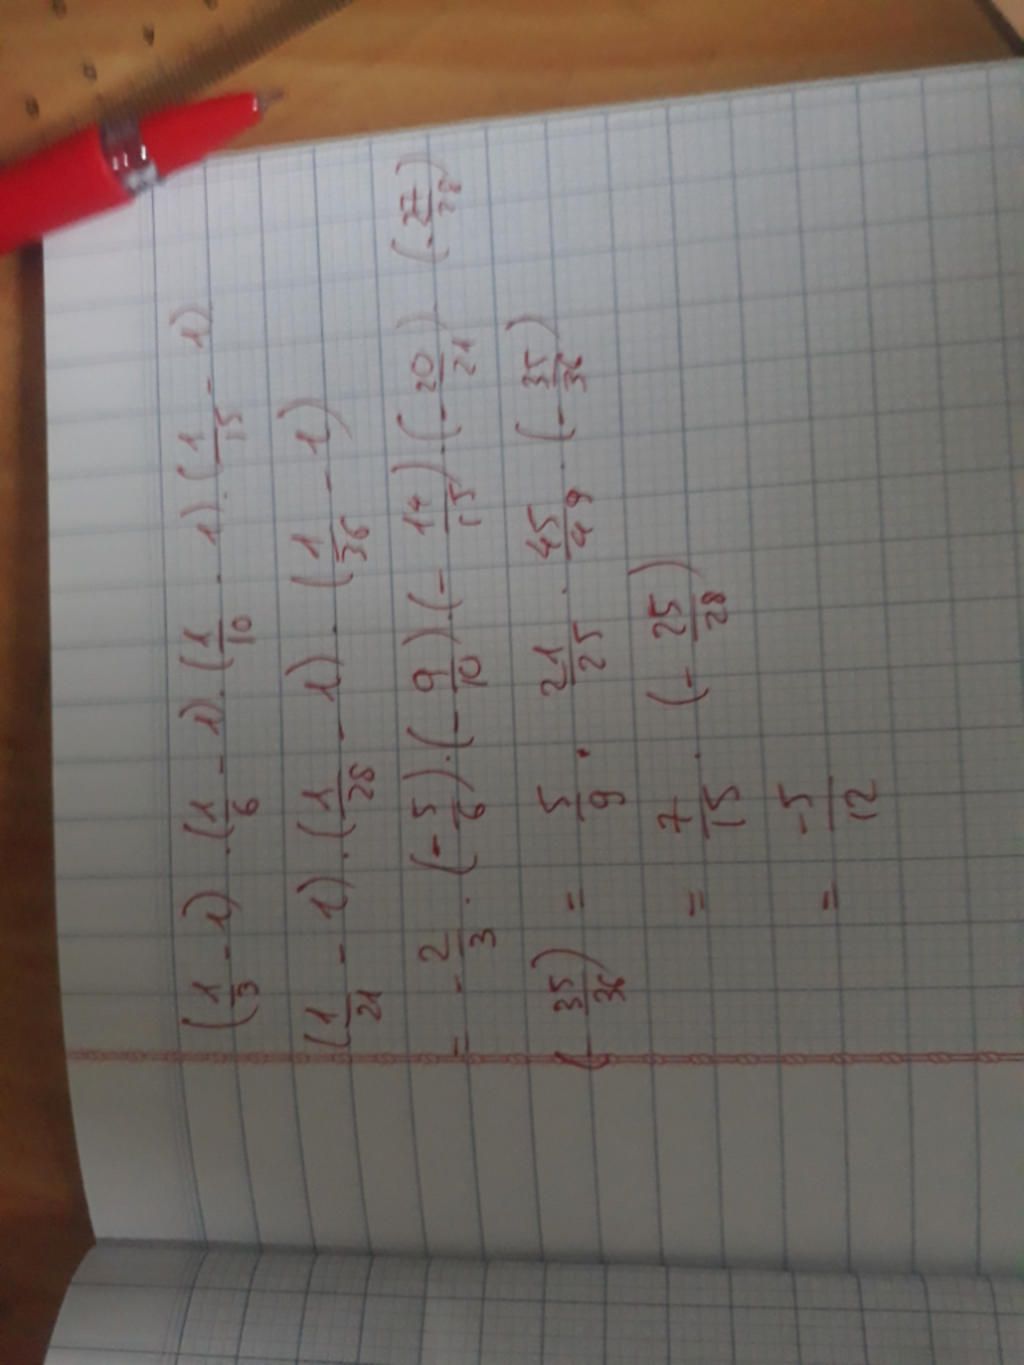 (1/3 - 1) . (1/6 - 1) . (1/10 - 1) . (1/15 - 1)
(1/21 - 1) . (1/28 - 1) . (1/36 - 1)
= - 2/3 . (- 5/6) . (- 9/10) . (- 14/15) . (- 20/21) . (- 27/28)
(- 35/36) = 5/9 . 21/25 . 45/49 . (- 35/36)
= 7/15 . (- 25/28)
= -5/12